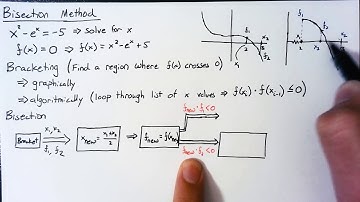 Bisection Method
x² - eˣ = -5 ⇒ solve for x
f(x) = 0 ⇒ f(x) = x² - eˣ + 5
Bracketing (Find a region where f(x) crosses 0)
⇒ graphically
⇒ algorithmically (loop through list of x values ⇒ f(xᵢ)·f(xᵢ₋₁) ≤ 0)
Bisection
Bracket
x₁, x₂
f₁, f₂
x_new = (x₁ + x₂)/2
f_new = f(x_new)
f_new · f₁ < 0
f_new · f₂ < 0